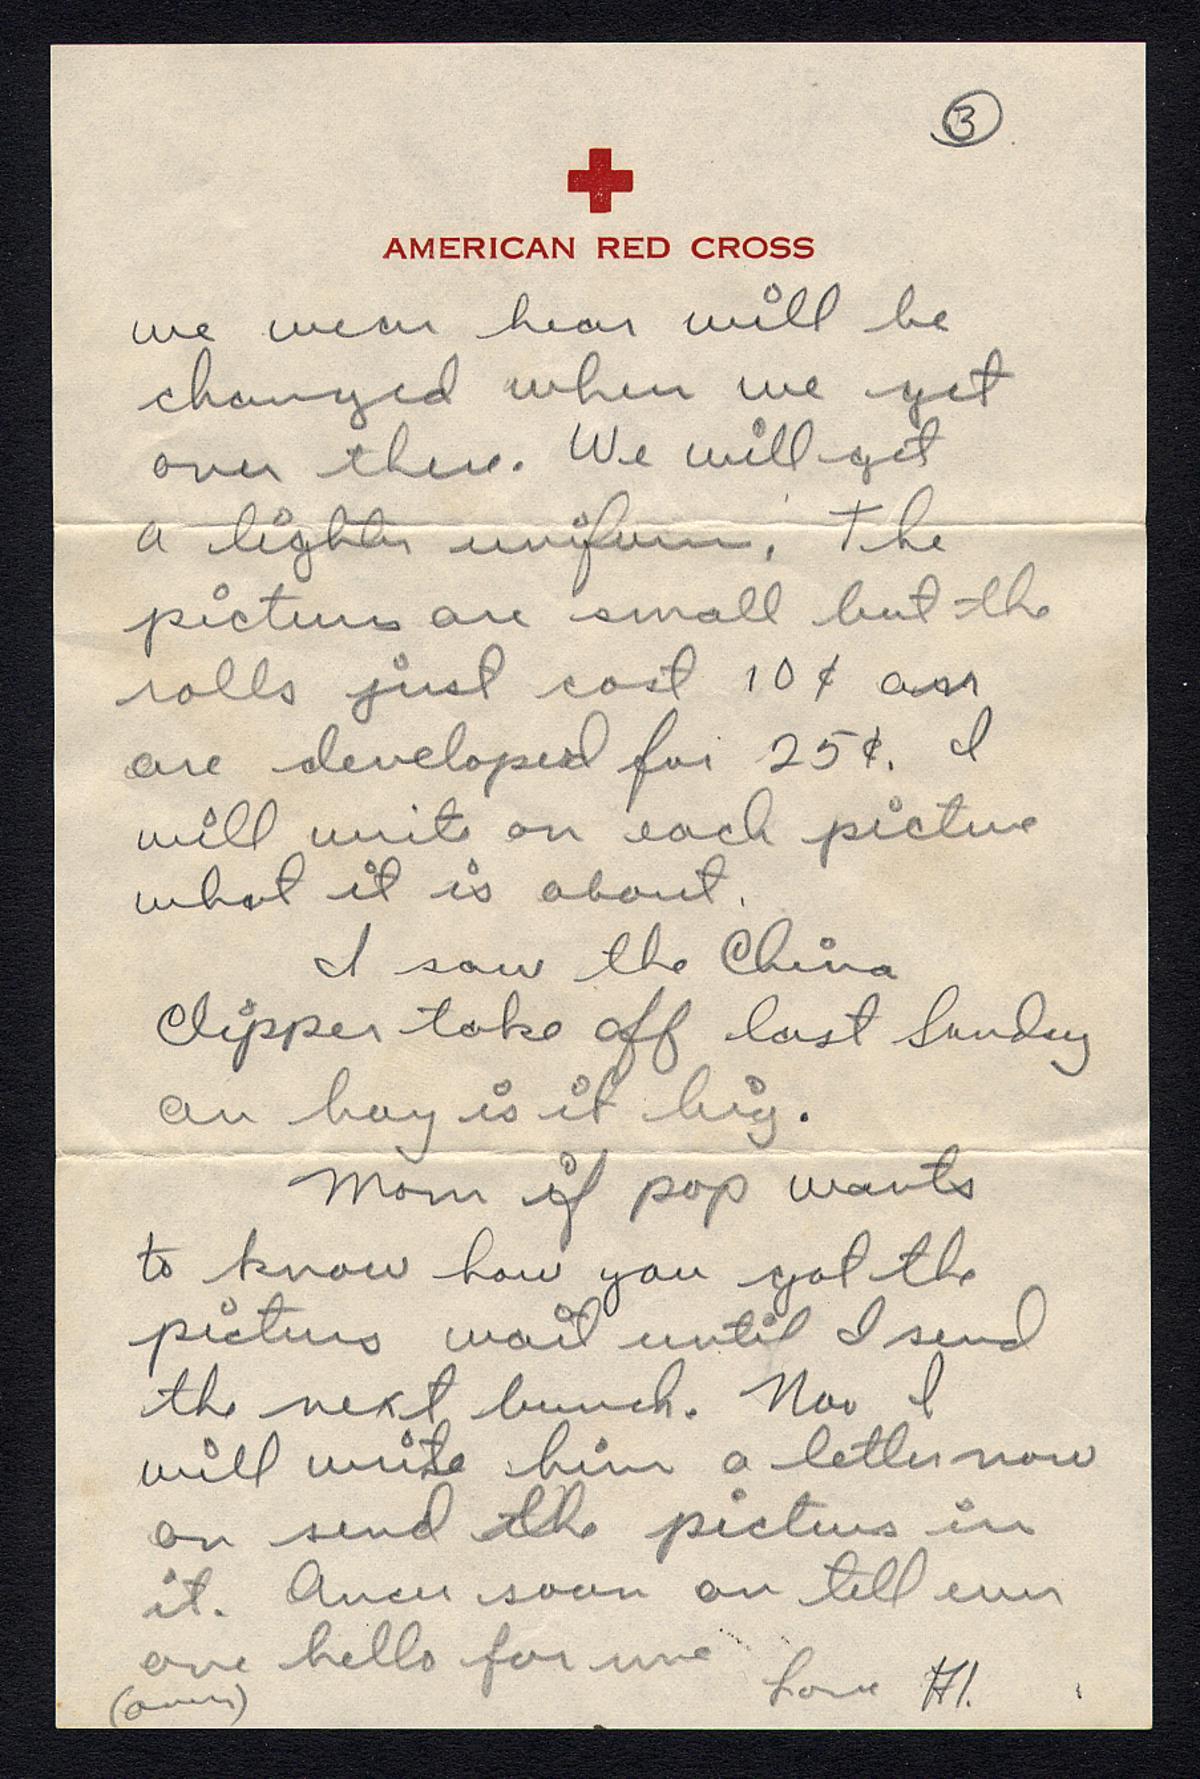 3
AMERICAN RED CROSS
we wear hear will be
changed when we get
over there. We will get
a lighter uniform. The
pictures are small but the
rolls just cost 10¢ an
are developed for 25¢. I
will write on each picture
what it is about.
I saw the China
Clipper take off last Sunday
an boy is it big.
Mom if pop wants
to know how you got the
picturs wait until I send
the next bunch. Noo I
will write him a letter now
an send the picturs in
it. Ancer soon an tell ever
one hello for me
Love Hl.
(over)